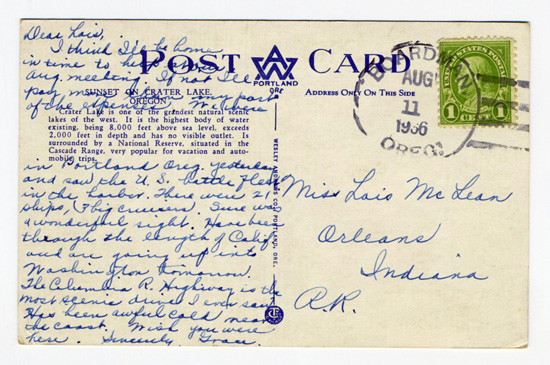 Dear Lois,
I think I'll be home
in time to help
Aug. meeting. If not I'll
pay my part
of the expenses We were
in Portland Oreg. yesterday
and saw the U.S. battle fleet
in the harbor. There were 21
ships, 7 big cruisers. Sure was
a wonderful sight. Have been
through the length of Calif.
and are going up into
Washington tomorrow.
The Columbia R. Highway is the
most scenic drive I ever saw
Has been awful cold near
the coast. Wish you were
here. Sincerely, Grace.
POST CARD
PORTLAND
ORE
ADDRESS ONLY ON THIS SIDE
SUNSET ON CRATER LAKE,
OREGON
Crater Lake is one of the grandest natural scenic
lakes of the west. It is the highest body of water
existing, being 8,000 feet above sea level, exceeds
2,000 feet in depth and has no visible outlet. Is
surrounded by a National Reserve, situated in the
Cascade Range, very popular for vacation and auto-
mobile trips.
WESLEY ANDREWS CO., PORTLAND, ORE.
BOARDMAN
AUG
11
1936
OREG.
UNITED STATES POSTAGE
1 CENT 1
Miss Lois McLean
Orleans
Indiana
R.R.